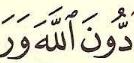 دُّونَ ٱللَّهَ وَرَ